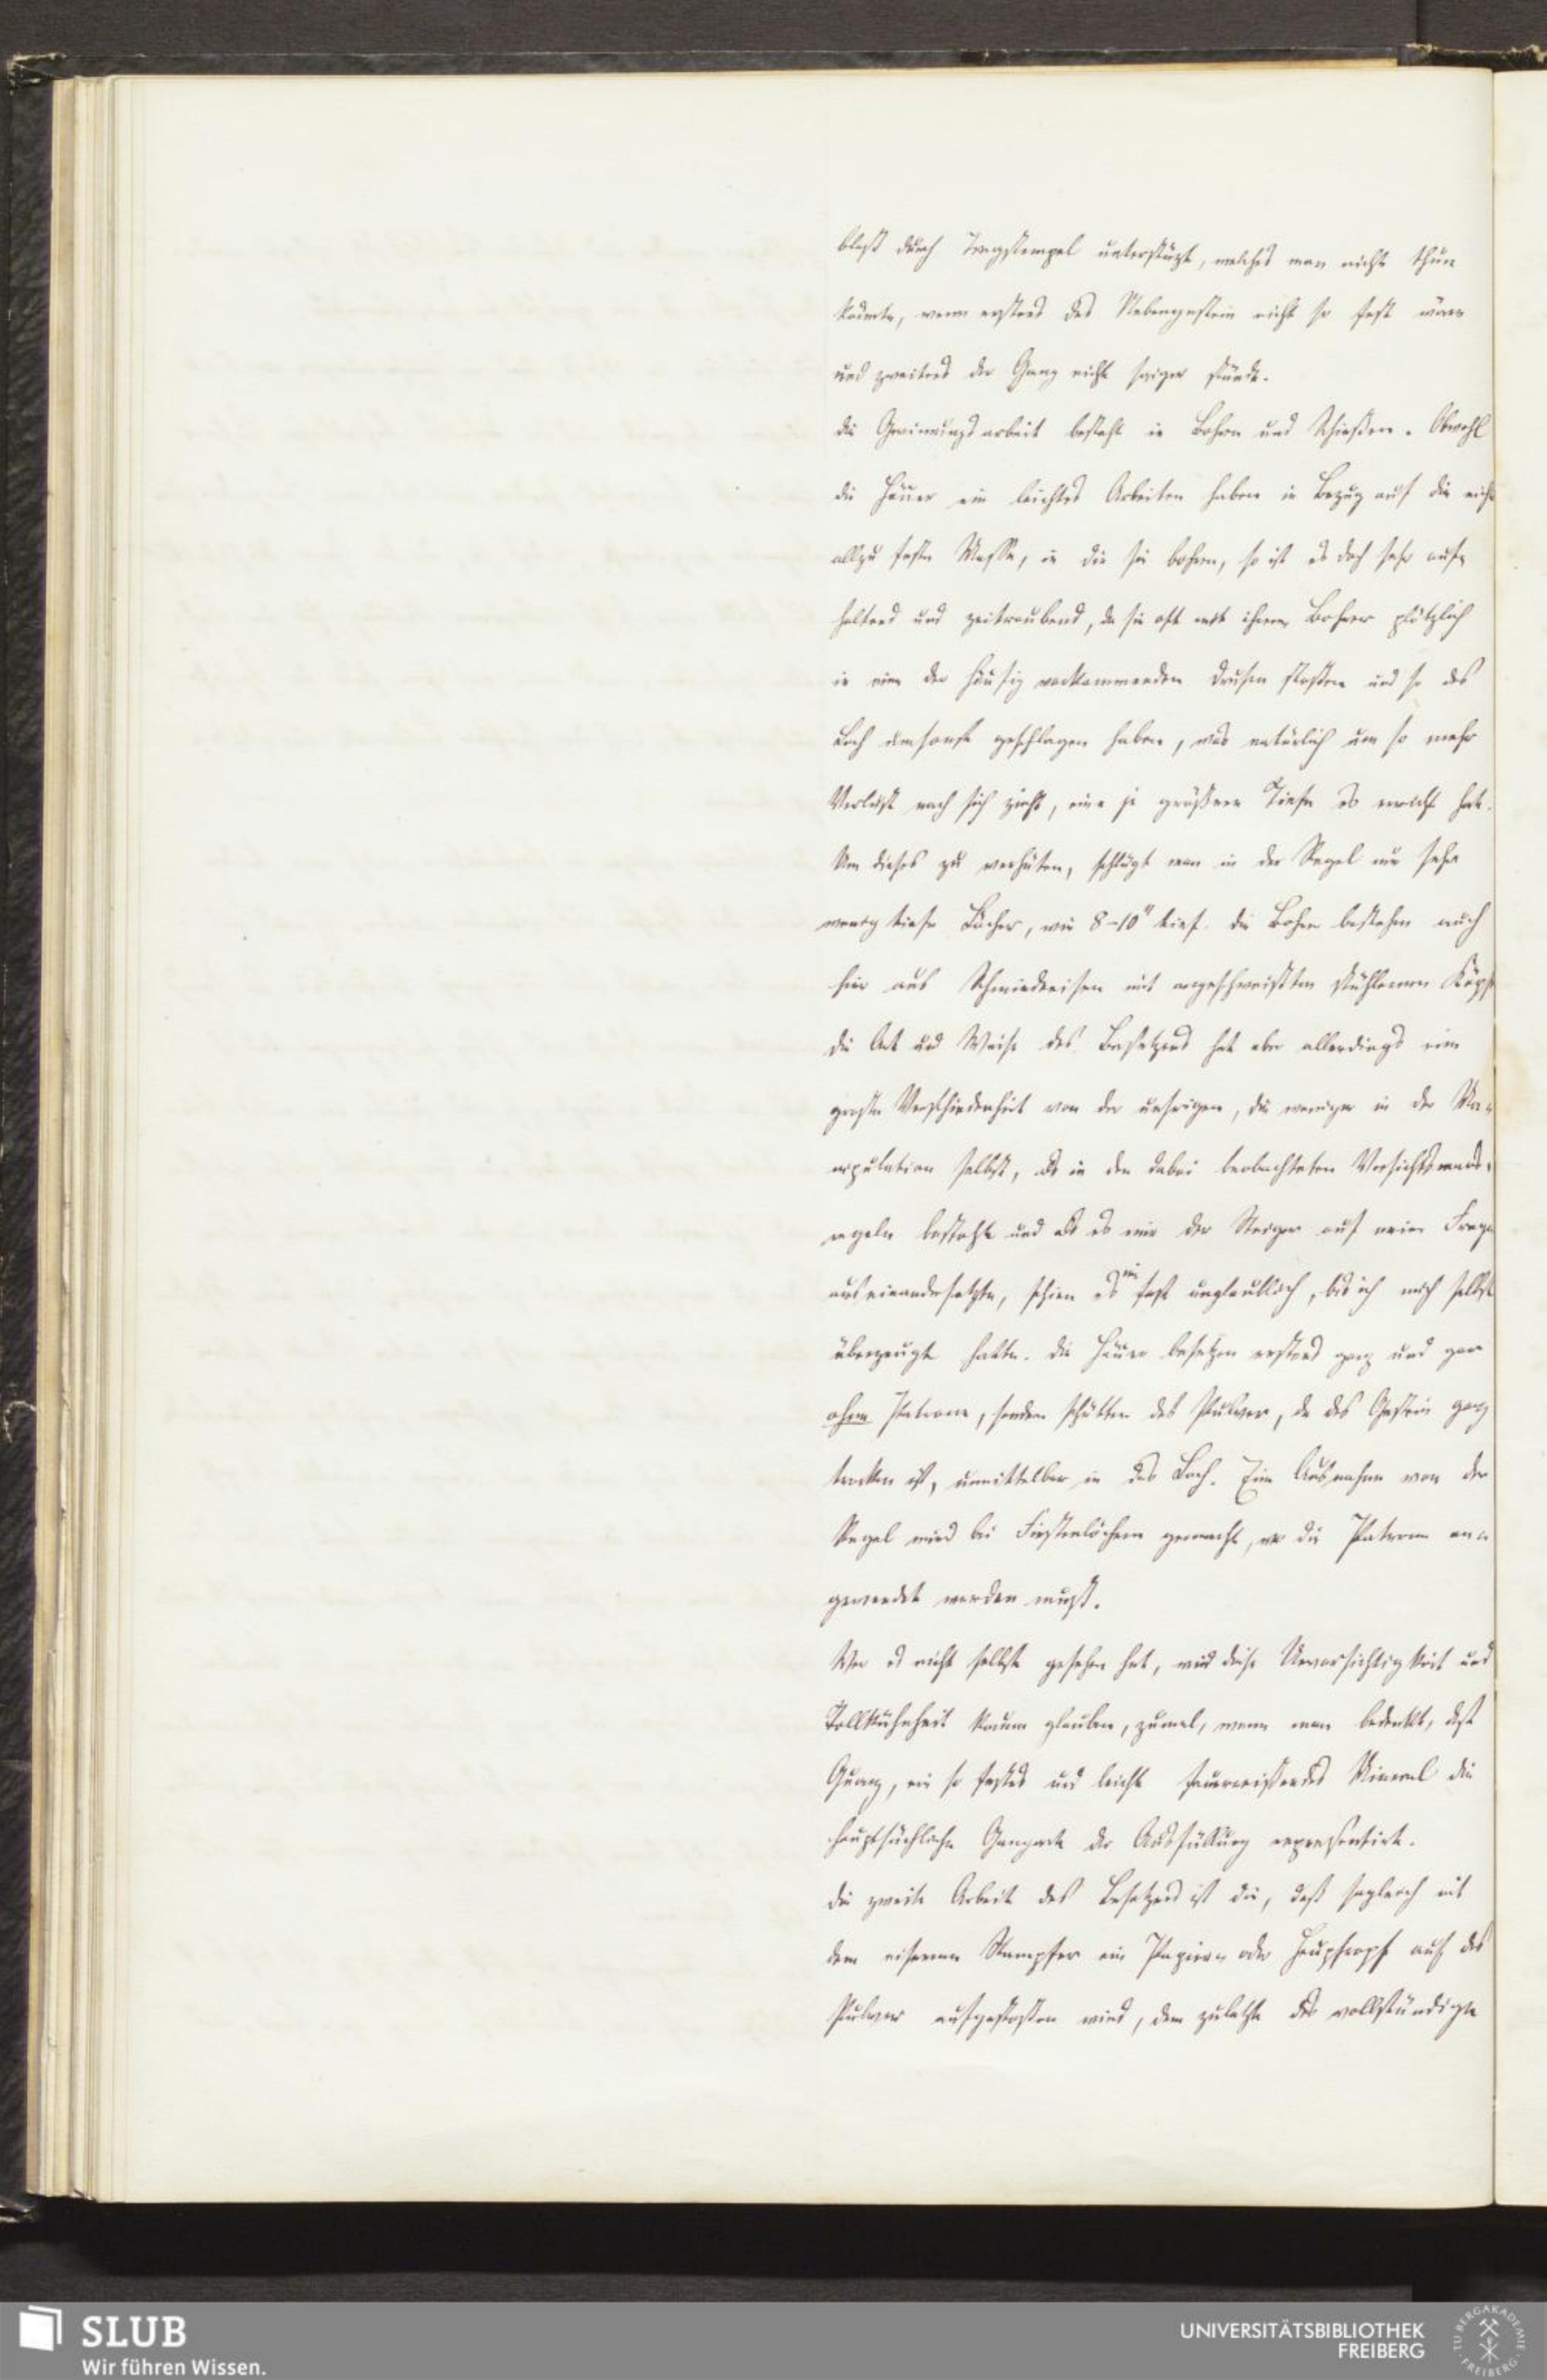 bloß durch Tragstempel unterstüzt, welches man nicht thun
könnte, wenn erstens das Nebengestein nicht so fest wäre
und zweitens der Gang nicht saiger stünde.
Die Gewinnungsarbeit besteht in Bohren und Schießen. Obwohl
die Häuer ein leichtes Arbeiten haben in Bezug auf die nicht
allzu feste Masse, in die sie bohren, so ist es doch sehr auf-
haltend und zeitraubend, da sie oft mit ihrem Bohrer plötzlich
in eine der häufig vorkommenden Drusen stoßen und so das
Loch umsonst geschlagen haben, was natürlich um so mehr
Verlust nach sich zieht, eine je größere Tiefe es erreicht hat.
Um dieses zu verhüten, schlägt man in der Regel nur sehr
wenig tiefe Löcher, wie 8-10" tief. Die Bohrer bestehen auch
hier aus Schmiedeeisen mit angeschweißten stählernen Köpf
Die Art und Weise des Besetzens hat aber allerdings eine
große Verschiedenheit von der unsrigen, die weniger in der Ma-
nipulation selbst, als in den dabei beobachteten Vorsichtsmaas-
regeln besteht und als es mir der Steiger auf meine Frage
auseinandersetzte, schien es mir fast unglaublich, bis ich mich selbst
überzeugt hatte. Die Häuer besetzen erstens ganz und gar
ohne Patrone, sondern schütten das Pulver, da das Gestein ganz
trocken ist, unmittelbar in das Loch. Eine Ausnahme von der
Regel wird bei Firstenlöchern gemacht, wo die Patrone an-
gewendet werden muß.
Wer es nicht selbst gesehen hat, wird diese Unvorsichtigkeit und
Tollkühnheit kaum glauben, zumal, wenn man bedenkt, daß
Quarz, ein so festes und leicht feuerreißendes Mineral die
hauptsächliche Gangart der Ausfüllung representirt.
Die zweite Arbeit des Besetzens ist die, daß sogleich mit
dem eisernen Stampfer ein Papier- oder Heupfropf auf das
Pulver aufgestoßen wird, dem zuletzt das vollständige
SLUB
Wir führen Wissen.
UNIVERSITÄTSBIBLIOTHEK
FREIBERG
TU BERGAKADEMIE FREIBERG